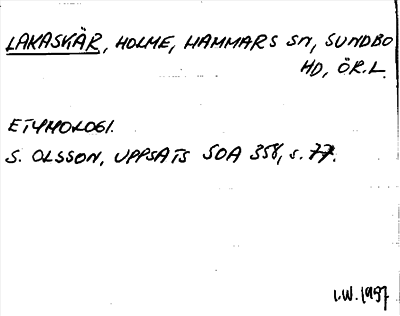 LAKASKÄR, HOLME, HAMMARS SN, SUNDBO
HD, ÖR.L.
ETYMOLOGI.
S. OLSSON, UPPSATS SOA 358, s. 77.
I.W. 1987